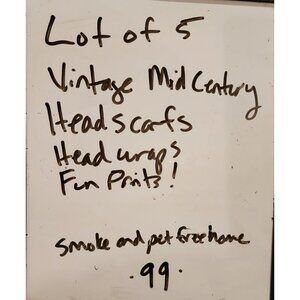 Lot of 5
Vintage Mid Century
Head scarfs
Head wraps
Fun Prints!
smoke and pet free home
.99.